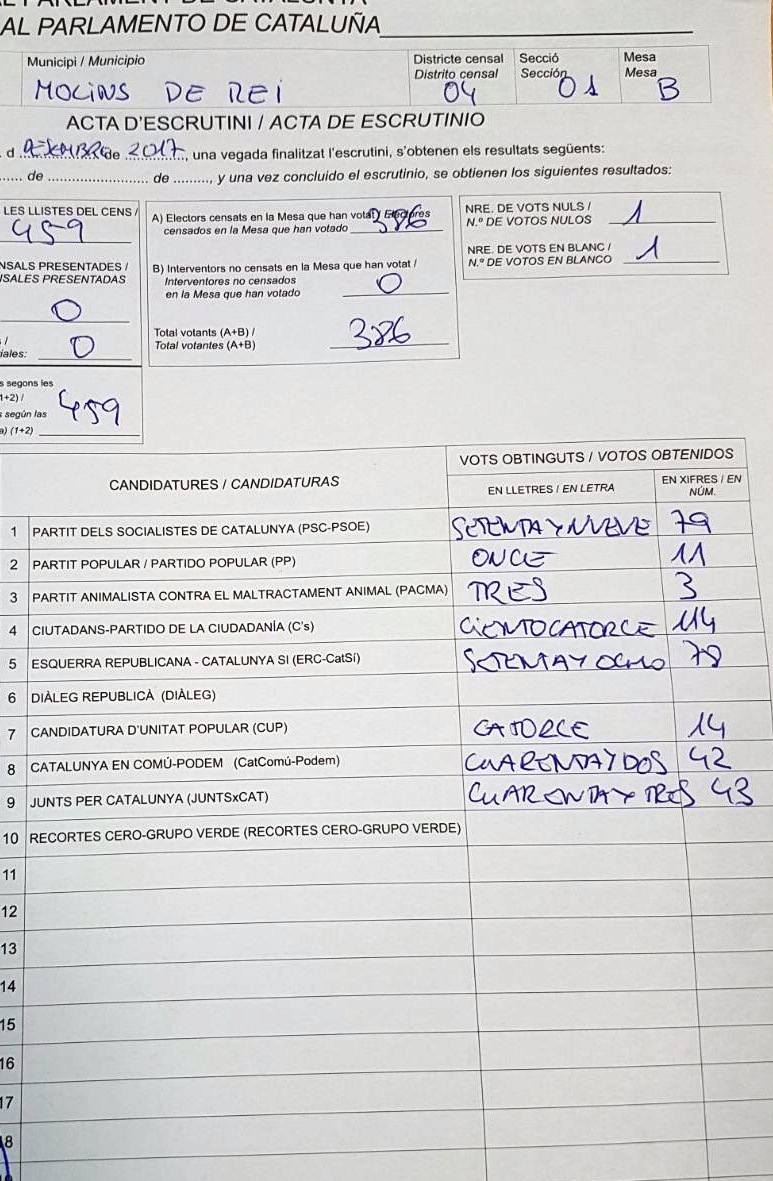 AL PARLAMENTO DE CATALUÑA
Municipi / Municipio
MOLINS DE REI
Districte censal
Distrito censal
04
Secció
Sección
01
Mesa
Mesa
B
ACTA D'ESCRUTINI / ACTA DE ESCRUTINIO
d DESEMBRE de 2017, una vegada finalitzat l'escrutini, s'obtenen els resultats següents:
...... de ...................... de ........., y una vez concluido el escrutinio, se obtienen los siguientes resultados:
LES LLISTES DEL CENS /
459
NSALS PRESENTADES /
SALES PRESENTADAS
0
/
iales: 0
s segons les
1+2) /
s según las
a) (1+2)
459
A) Electors censats en la Mesa que han votat / Electores
censados en la Mesa que han votado 386
B) Interventors no censats en la Mesa que han votat /
Interventores no censados
en la Mesa que han votado 0
Total votants (A+B) /
Total votantes (A+B) 386
NRE. DE VOTS NULS /
N.º DE VOTOS NULOS 1
NRE. DE VOTS EN BLANC /
N.º DE VOTOS EN BLANCO 1
CANDIDATURES / CANDIDATURAS
VOTS OBTINGUTS / VOTOS OBTENIDOS
EN LLETRES / EN LETRA
EN XIFRES / EN
NÚM.
1 PARTIT DELS SOCIALISTES DE CATALUNYA (PSC-PSOE) SETENTA Y NUEVE 79
2 PARTIT POPULAR / PARTIDO POPULAR (PP) ONCE 11
3 PARTIT ANIMALISTA CONTRA EL MALTRACTAMENT ANIMAL (PACMA) TRES 3
4 CIUTADANS-PARTIDO DE LA CIUDADANÍA (C's) CIENTOCATORCE 114
5 ESQUERRA REPUBLICANA - CATALUNYA SI (ERC-CatSí) SETENTA Y OCHO 78
6 DIÀLEG REPUBLICÀ (DIÀLEG)
7 CANDIDATURA D'UNITAT POPULAR (CUP) CATORCE 14
8 CATALUNYA EN COMÚ-PODEM (CatComú-Podem) CUARENTA Y DOS 42
9 JUNTS PER CATALUNYA (JUNTSxCAT) CUARENTA Y TRES 43
10 RECORTES CERO-GRUPO VERDE (RECORTES CERO-GRUPO VERDE)
11
12
13
14
15
16
17
18